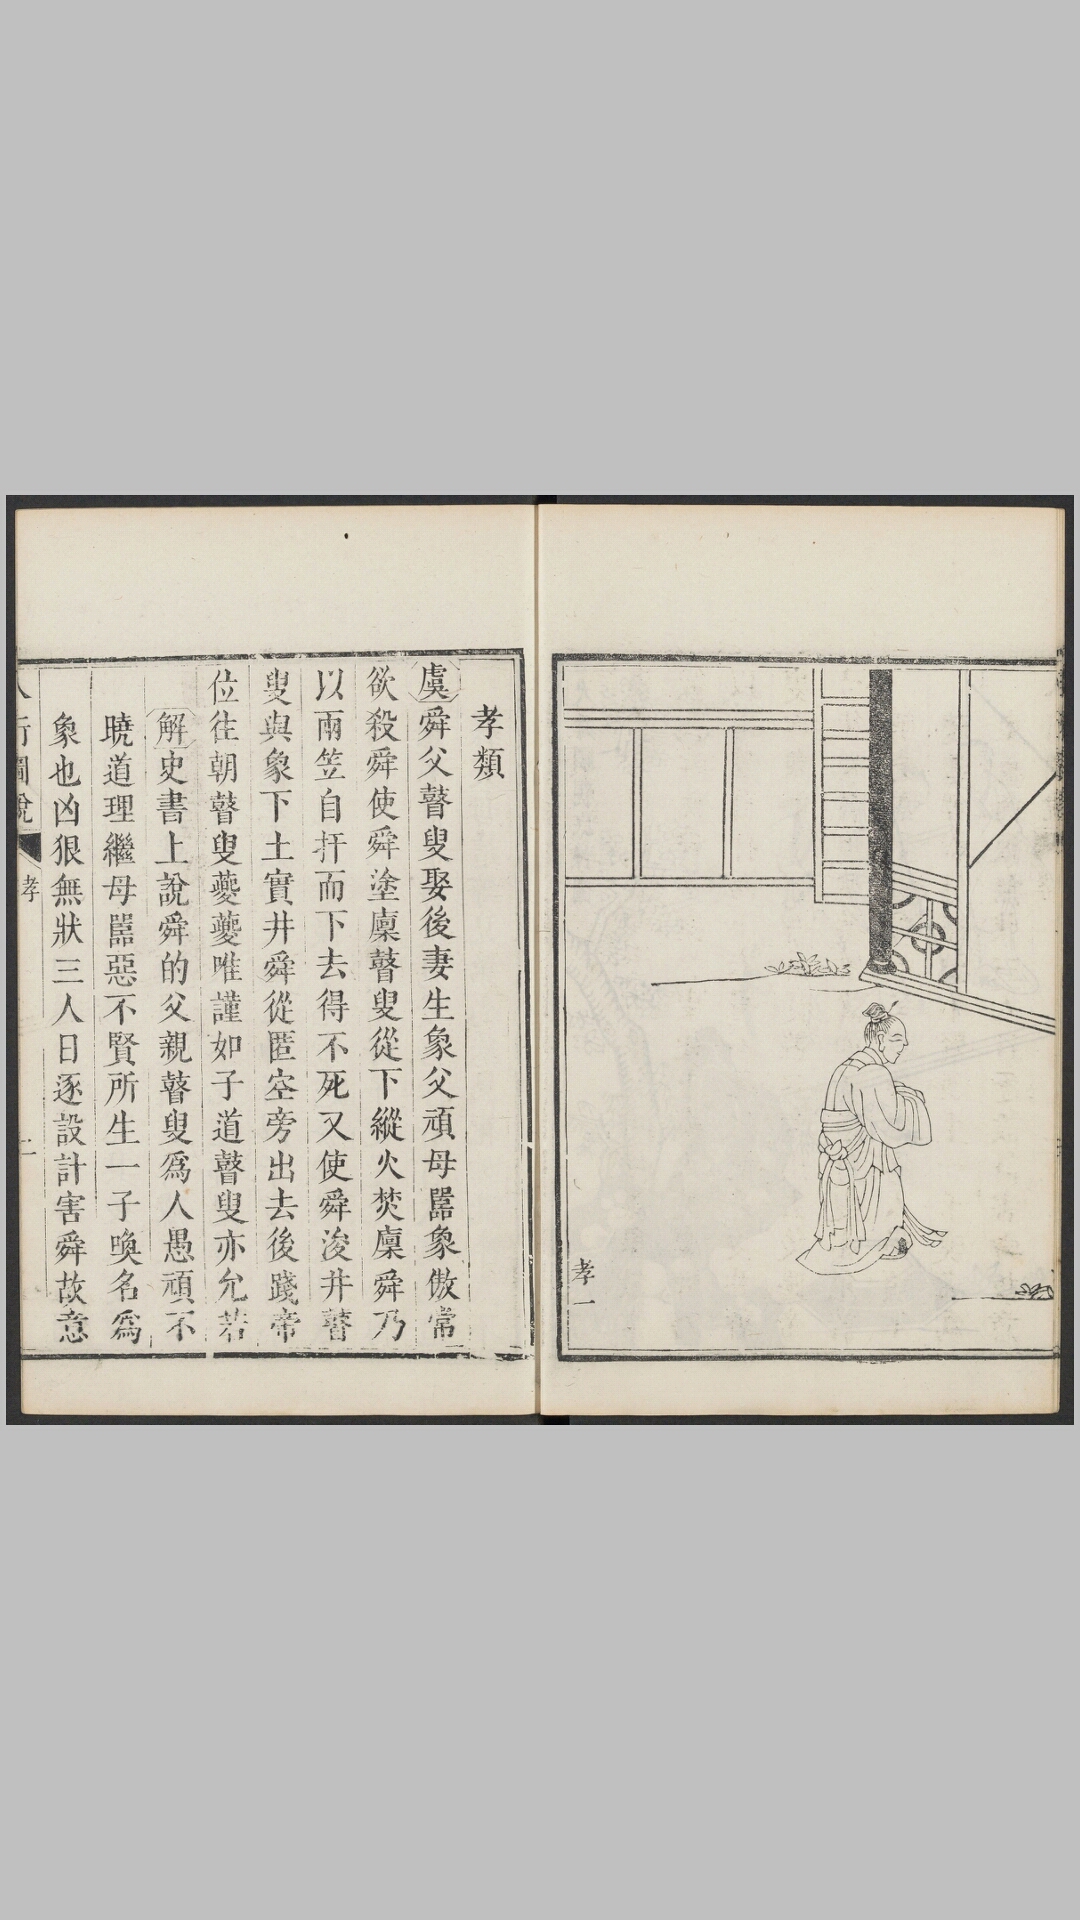 孝一
孝類
虞舜父瞽叟娶後妻生象父頑母嚚象傲常
欲殺舜使舜塗廩瞽叟從下縱火焚廩舜乃
以兩笠自扞而下去得不死又使舜浚井瞽
叟與象下土實井舜從匿空旁出去後踐帝
位往朝瞽叟夔夔唯謹如子道瞽叟亦允若
解史書上說舜的父親瞽叟爲人愚頑不
曉道理繼母嚚惡不賢所生一子喚名爲
象也凶狠無狀三人日逐設計害舜故意
孝